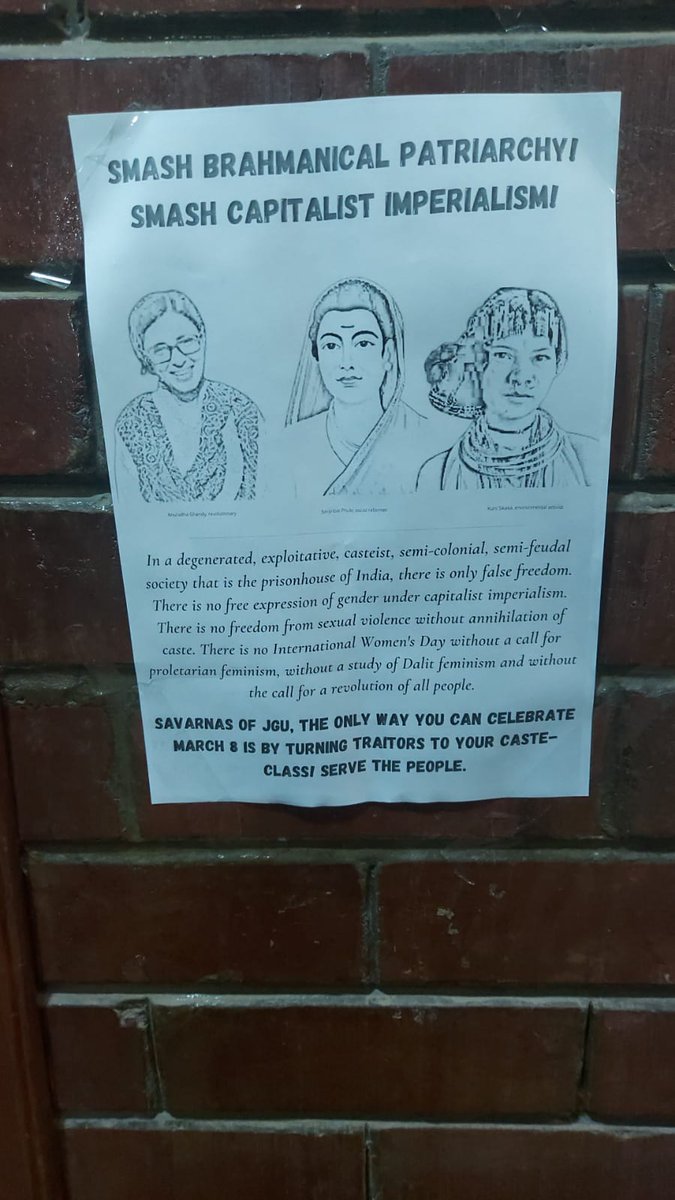 SMASH BRAHMANICAL PATRIARCHY!
SMASH CAPITALIST IMPERIALISM!
Anuradha Ghandy, revolutionary
Savitribai Phule, social reformer
Kuni Sikaka, environmental activist
In a degenerated, exploitative, casteist, semi-colonial, semi-feudal
society that is the prisonhouse of India, there is only false freedom.
There is no free expression of gender under capitalist imperialism.
There is no freedom from sexual violence without annihilation of
caste. There is no International Women's Day without a call for
proletarian feminism, without a study of Dalit feminism and without
the call for a revolution of all people.
SAVARNAS OF JGU, THE ONLY WAY YOU CAN CELEBRATE
MARCH 8 IS BY TURNING TRAITORS TO YOUR CASTE-
CLASS! SERVE THE PEOPLE.